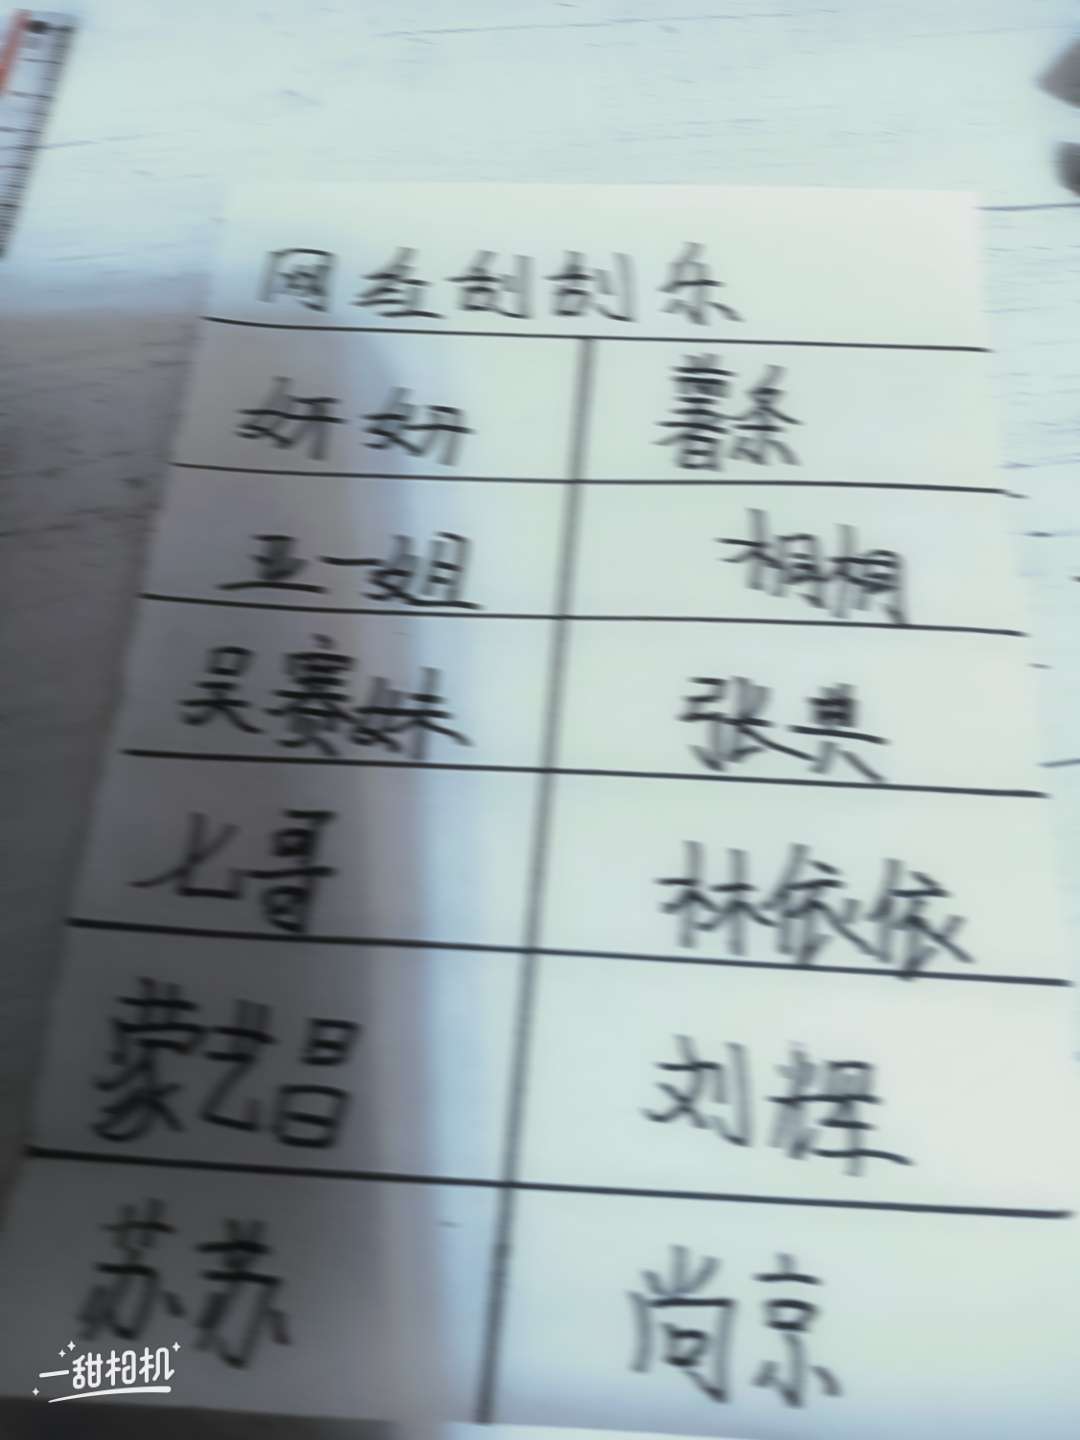 网红刮刮乐
妍妍 薯条
王一姐 桐桐
吴赛妹 张兴
七哥 林依依
蒙艺昌 刘辉
苏苏 尚京
一甜相机